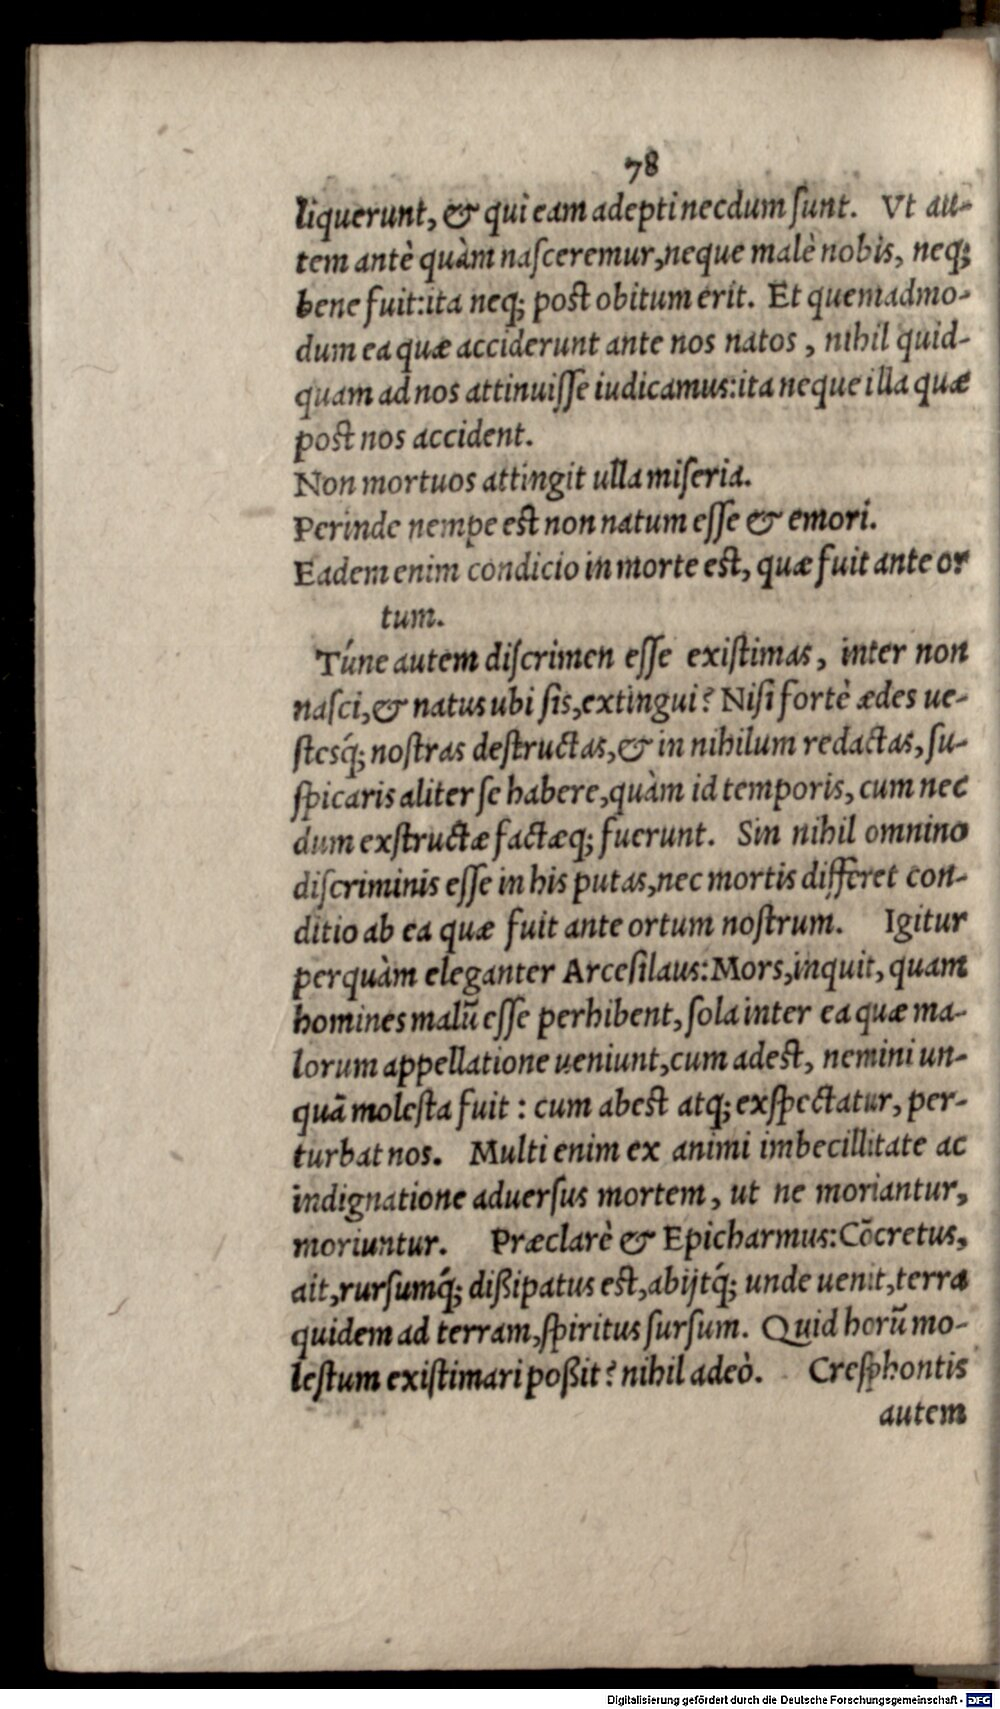 78
liquerunt, & qui eam adepti necdum ſunt. Vt au-
tem antè quàm naſceremur, neque malè nobis, neq;
bene fuit: ita neq; poſt obitum erit. Et quemadmo-
dum ea quæ acciderunt ante nos natos, nihil quid-
quam ad nos attinuiſſe iudicamus: ita neque illa quæ
poſt nos accident.
Non mortuos attingit ulla miſeria.
Perinde nempe eſt non natum eſſe & emori.
Eadem enim condicio in morte eſt, quæ fuit ante or
tum.
Túne autem diſcrimen eſſe exiſtimas, inter non
naſci, & natus ubi ſis, extingui? Niſi fortè ædes ue-
ſtesq́; noſtras deſtructas, & in nihilum redactas, ſu-
ſpicaris aliter ſe habere, quàm id temporis, cum nec
dum exſtructæ factæq; fuerunt. Sin nihil omnino
diſcriminis eſſe in his putas, nec mortis differet con-
ditio ab ea quæ fuit ante ortum noſtrum. Igitur
perquàm eleganter Arceſilaus: Mors, inquit, quam
homines malũ eſſe perhibent, ſola inter ea quæ ma-
lorum appellatione ueniunt, cum adeſt, nemini un-
quã moleſta fuit: cum abeſt atq; exſpectatur, per-
turbat nos. Multi enim ex animi imbecillitate ac
indignatione aduerſus mortem, ut ne moriantur,
moriuntur. Præclarè & Epicharmus: Cõcretus,
ait, rurſumq́; dißipatus eſt, abijtq́; unde uenit, terra
quidem ad terram, ſpiritus ſurſum. Quid horũ mo-
leſtum exiſtimari poßit? nihil adeò. Creſphontis
autem
Digitalisierung gefördert durch die Deutsche Forschungsgemeinschaft - DFG